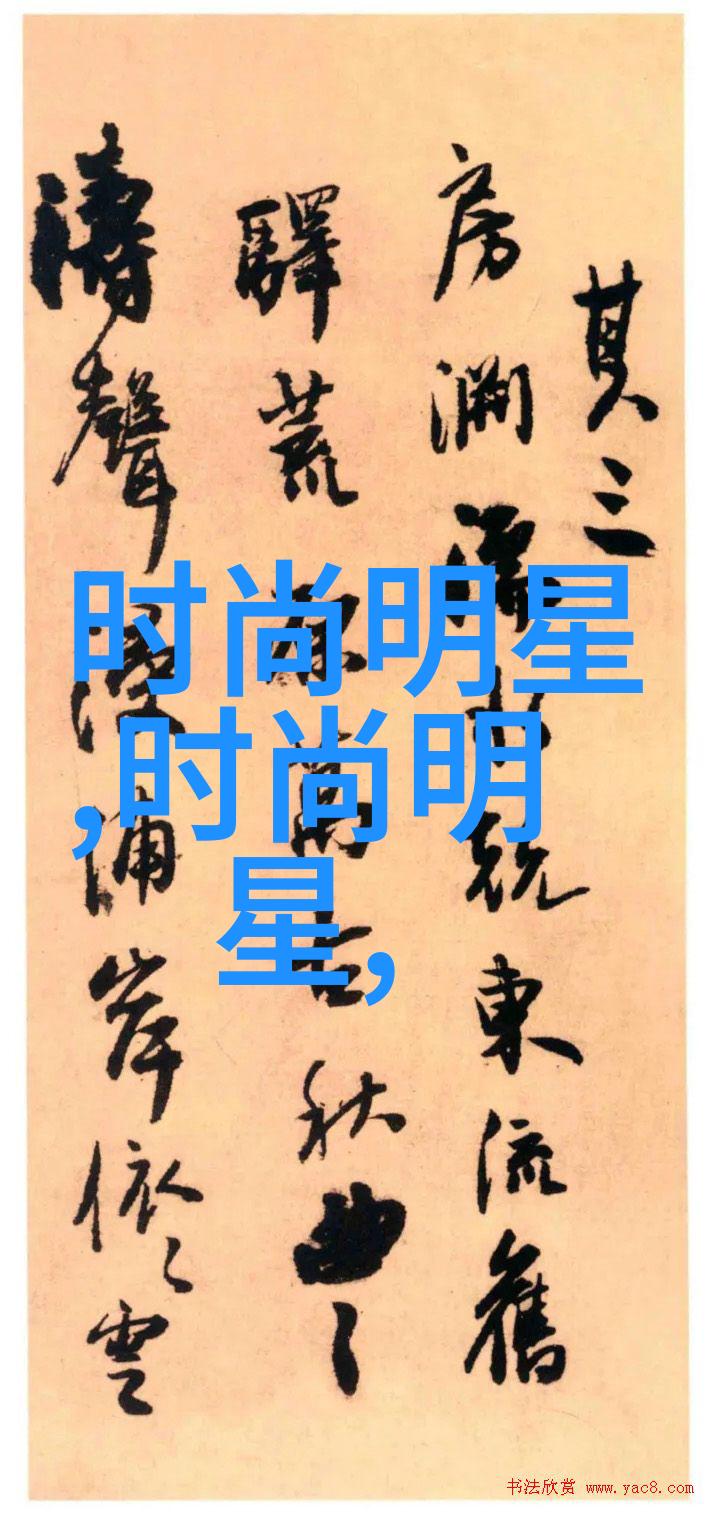 其三
房水競東流舊
驛荒原萬古秋曲々
濤聲浦岸依々雲
时尚明星
,时尚明
星,
书法欣赏 www.yac8.com